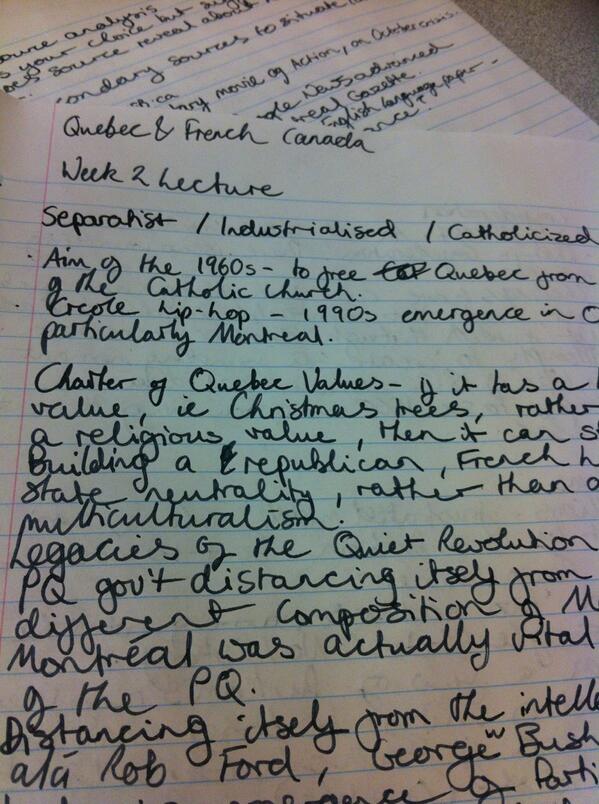 source analysis
your choice but
source reveal about
ondary sources to situate
movie of Action, on October crisis.
.ca
News advanced
Gazette.
English language paper -
Quebec & French Canada
Week 2 Lecture
Separatist / Industrialised / Catholicized
· Aim of the 1960s - to free Quebec from
of the Catholic church.
· Creole hip-hop - 1990s emergence in
particularly Montreal.
Charter of Quebec Values - if it has a
value, ie Christmas trees, rather
a religious value, then it can
Building a republican, French
state neutrality, rather than a
multiculturalism.
Legacies of the Quiet Revolution
PQ gov't distancing itself from
different composition of M
Montréal was actually vital
of the PQ.
Distancing itself from the intelle
alá Rob Ford, George W Bush
emergence of Parti